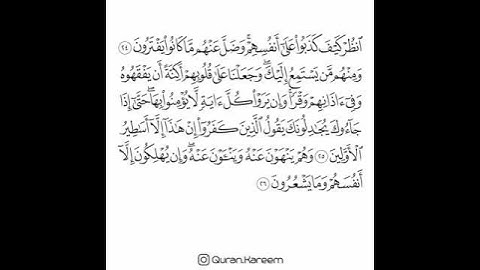 ٱنظُرْ كَيْفَ كَذَبُوا۟ عَلَىٰٓ أَنفُسِهِمْ ۚ وَضَلَّ عَنْهُم مَّا كَانُوا۟ يَفْتَرُونَ ٢٤
وَمِنْهُم مَّن يَسْتَمِعُ إِلَيْكَ ۖ وَجَعَلْنَا عَلَىٰ قُلُوبِهِمْ أَكِنَّةً أَن يَفْقَهُوهُ
وَفِىٓ ءَاذَانِهِمْ وَقْرًا ۚ وَإِن يَرَوْا۟ كُلَّ ءَايَةٍ لَّا يُؤْمِنُوا۟ بِهَا ۚ حَتَّىٰٓ إِذَا
جَآءُوكَ يُجَٰدِلُونَكَ يَقُولُ ٱلَّذِينَ كَفَرُوٓا۟ إِنْ هَٰذَآ إِلَّآ أَسَٰطِيرُ
ٱلْأَوَّلِينَ ٢٥ وَهُمْ يَنْهَوْنَ عَنْهُ وَيَنْـَٔوْنَ عَنْهُ ۖ وَإِن يُهْلِكُونَ إِلَّآ
أَنفُسَهُمْ وَمَا يَشْعُرُونَ ٢٦
Quran.Kareem